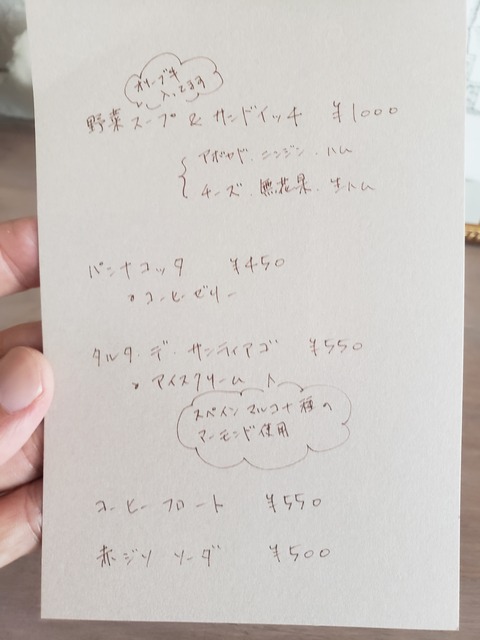 オリーブ牛
入ってます
野菜スープ & サンドイッチ ¥1000
アボカド・ニンジン・ハム
チーズ・無花果・生ハム
パンナコッタ ¥450
・コーヒーゼリー
タルタ・デ・サンティアゴ ¥550
・アイスクリーム
スペイン マルコナ種の
アーモンド使用
コーヒーフロート ¥550
赤ジソ ソーダ ¥500